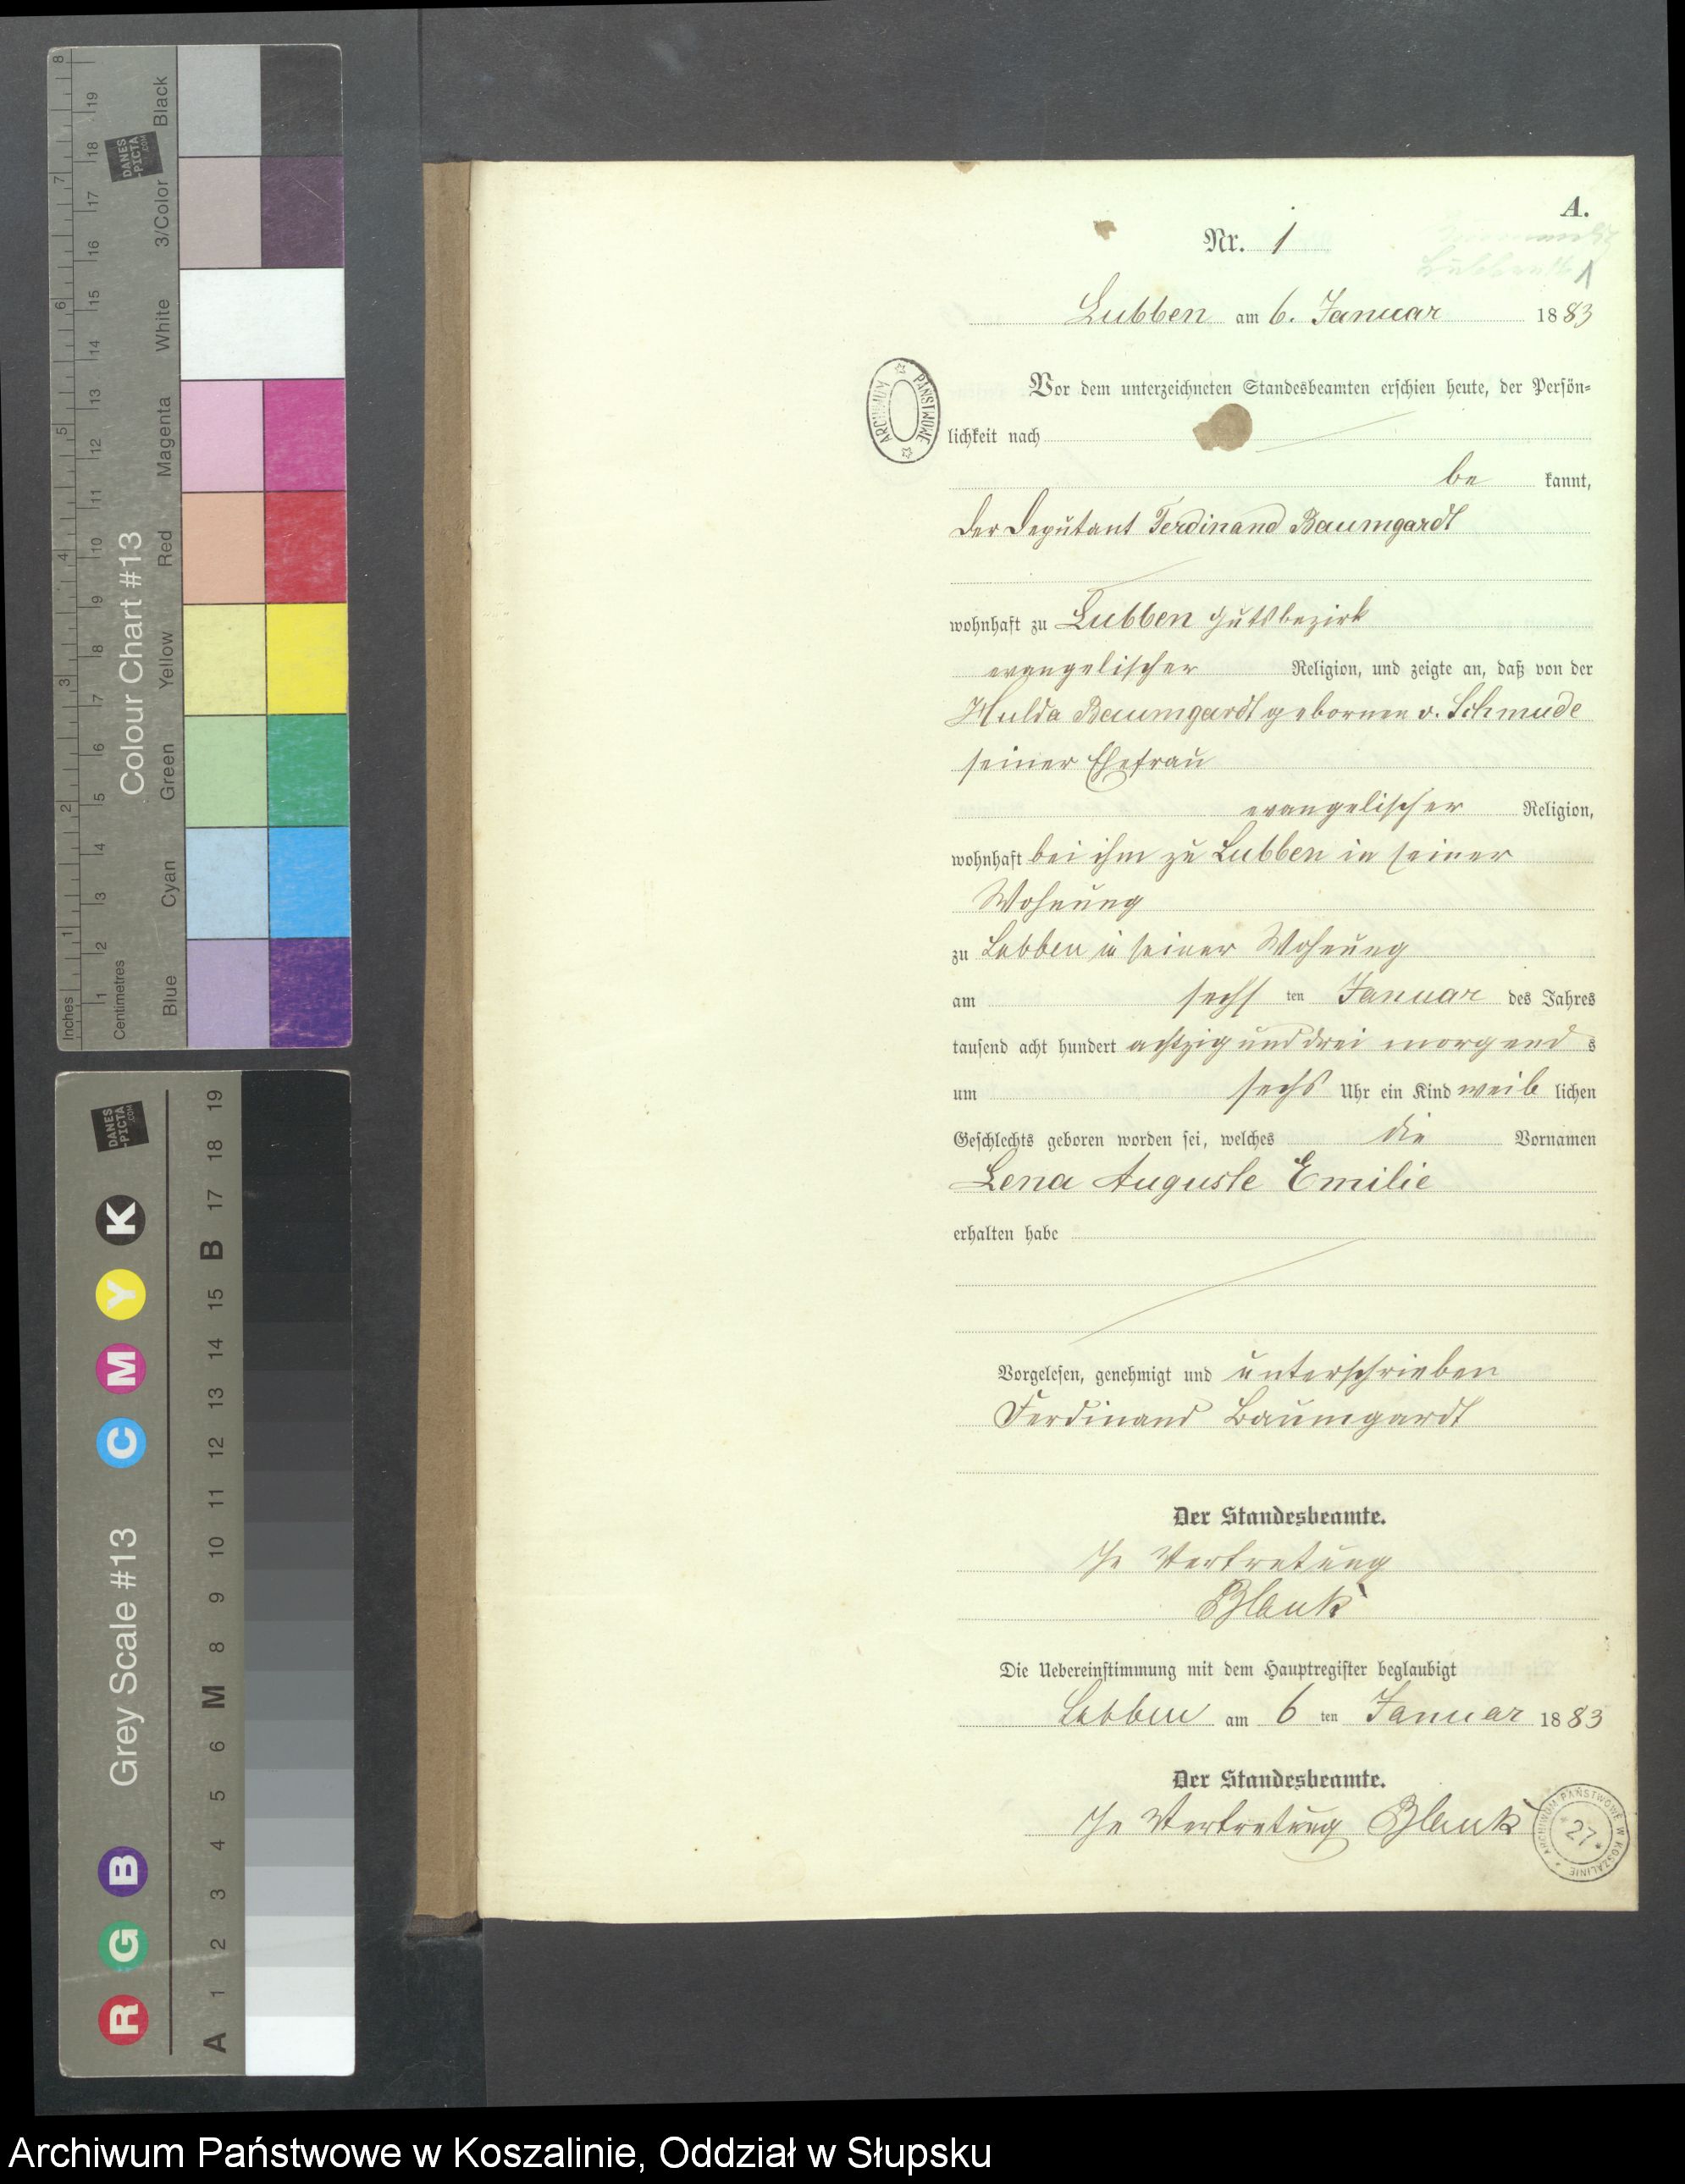 A.
Nr. 1
1
Lubben am 6. Januar 1883
Vor dem unterzeichneten Standesbeamten erschien heute, der Persön-
lichkeit nach
be kannt,
der Deputant Ferdinand Baumgardt
wohnhaft zu Lubben Gutsbezirk
evangelischer Religion, und zeigte an, daß von der
Hulda Baumgardt gebornen v. Schmude
seiner Ehefrau
evangelischer Religion,
wohnhaft bei ihm zu Lubben in seiner
Wohnung
zu Lubben in seiner Wohnung
am sechs ten Januar des Jahres
tausend acht hundert achtzig und drei morgend s
um sechs Uhr ein Kind weib lichen
Geschlechts geboren worden sei, welches die Vornamen
Lena Auguste Emilie
erhalten habe
Vorgelesen, genehmigt und unterschrieben
Ferdinand Baumgardt
Der Standesbeamte.
In Vertretung
Blank
Die Uebereinstimmung mit dem Hauptregister beglaubigt
Lubben am 6 ten Januar 1883
Der Standesbeamte.
In Vertretung Blank
ARCHIWUM PAŃSTWOWE
ARCHIWUM PAŃSTWOWE W KOSZALINIE
27
Colour Chart #13
Blue Cyan Green Yellow Red Magenta White 3/Color Black
Inches 1 2 3 4 5 6 7 8
Centimetres 1 2 3 4 5 6 7 8 9 10 11 12 13 14 15 16 17 18 19
DANES-PICTA.COM
Grey Scale #13
R G B C M Y K
A 1 2 3 4 5 6 M 8 9 10 11 12 13 14 15 B 17 18 19
DANES-PICTA.COM
Archiwum Państwowe w Koszalinie, Oddział w Słupsku